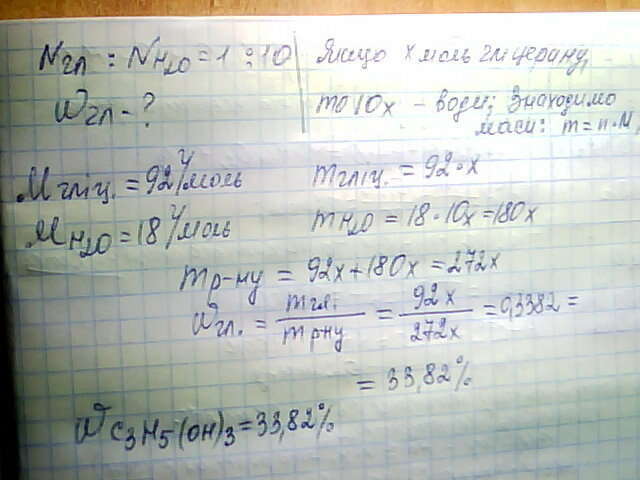 Nгл : NH2O = 1 : 10
Якщо x моль гліцерину,
Wгл - ?
то 10x - води; Знаходимо
маси: m = n·M
Mгліц. = 92 г/моль
mгліц. = 92·x
MH2O = 18 г/моль
mH2O = 18·10x = 180x
mр-ну = 92x + 180x = 272x
Wгл. = mгл. / mрну = 92x / 272x = 0,3382 =
= 33,82%
WC3H5(OH)3 = 33,82%